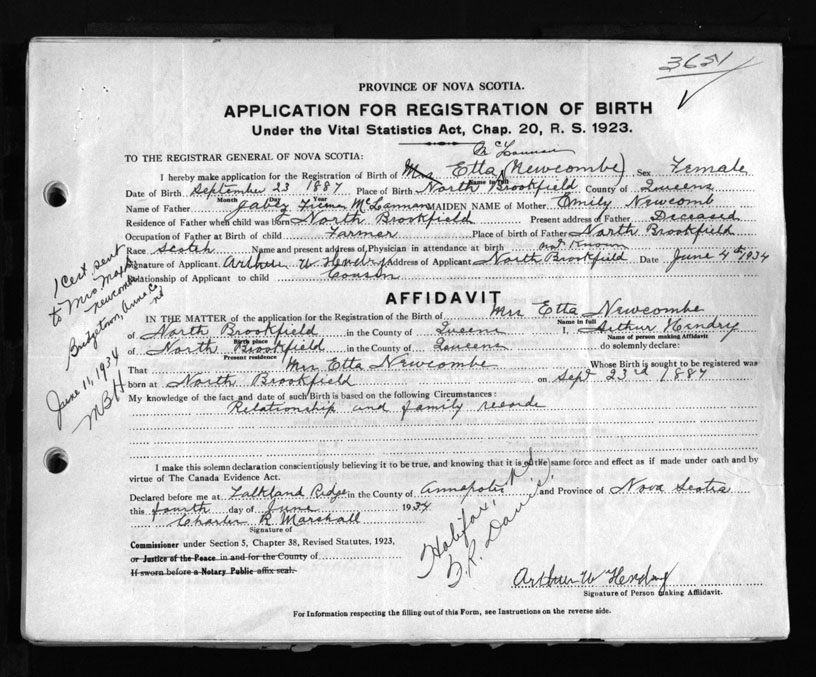 3651
PROVINCE OF NOVA SCOTIA.
APPLICATION FOR REGISTRATION OF BIRTH
Under the Vital Statistics Act, Chap. 20, R. S. 1923.
TO THE REGISTRAR GENERAL OF NOVA SCOTIA:
I hereby make application for the Registration of Birth of Mrs Etta (Newcombe) Sex Female
Name in full
Date of Birth September 23 1887 Place of Birth North Brookfield County of Queens
Month Day Year
Name of Father Jabez McLannan MAIDEN NAME of Mother Emily Newcomb
Residence of Father when child was born North Brookfield Present address of Father Deceased
Occupation of Father at Birth of child Farmer Place of birth of Father North Brookfield
Race Scotch Name and present address of Physician in attendance at birth not Known
Signature of Applicant Arthur W Hendry Address of Applicant North Brookfield Date June 4th 1934
Relationship of Applicant to child Cousin
1 Cert. sent
to Mrs
Newcombe
Bridgetown, Anna Co
NS
June 11, 1934
MBH
AFFIDAVIT
IN THE MATTER of the application for the Registration of the Birth of Mrs Etta Newcombe
Name in full
of North Brookfield in the County of Queens I, Arthur Hendry
Birth place Name of person making Affidavit
of North Brookfield in the County of Queens do solemnly declare:
Present residence
That Mrs Etta Newcombe Whose Birth is sought to be registered was
born at North Brookfield on Sept 23rd 1887
My knowledge of the fact and date of such Birth is based on the following Circumstances:
Relationship and family records
I make this solemn declaration conscientiously believing it to be true, and knowing that it is of the same force and effect as if made under oath and by
virtue of The Canada Evidence Act.
Declared before me at Falkland Ridge in the County of Annapolis and Province of Nova Scotia
this fourth day of June 1934
Charles R Marshall
Signature of
Halifax, N.S.
Davis
Commissioner under Section 5, Chapter 38, Revised Statutes, 1923,
or Justice of the Peace in and for the County of
If sworn before a Notary Public affix seal.
Arthur W Hendry
Signature of Person making Affidavit.
For Information respecting the filling out of this Form, see Instructions on the reverse side.